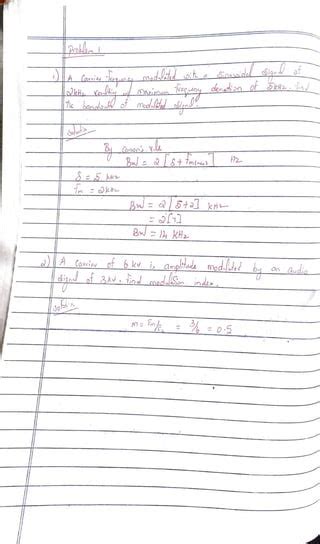 Problem 1
1) A Carrier frequency modulated with a sinusoidal signal of
2kHz resulting of maximum frequency deviation of 5kHz. find
the bandwidth of modulated signal.
solution
By carson's rule
BW = 2 [δ + fm(max)] Hz
δ = 5 kHz
fm = 2kHz
BW = 2 [5+2] kHz
= 2[7]
BW = 14 kHz
2) A carrier of 6 kv is amplitude modulated by an audio
signal of 3kv. find modulation index.
solution
m = Em/Ec = 3/6 = 0.5